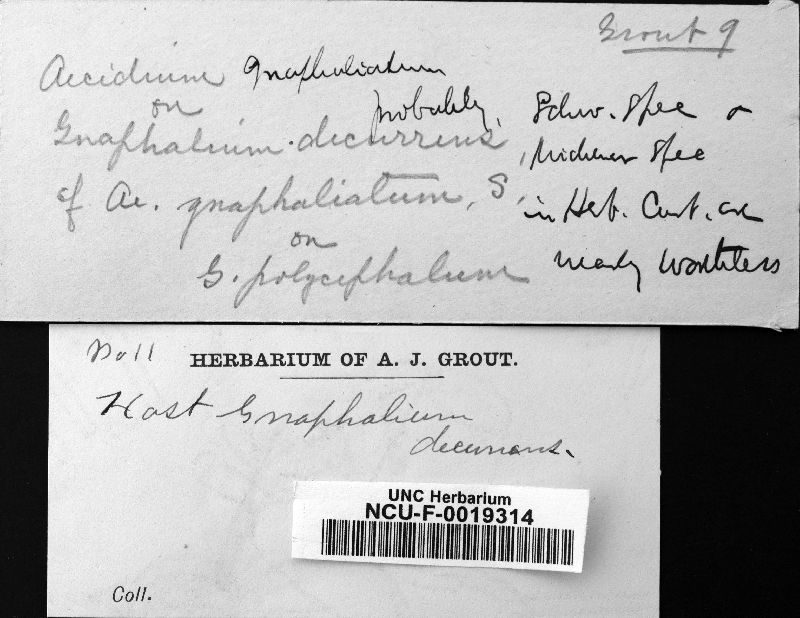 Grout 9
Aecidium gnaphaliatum
on probably, Schw. Spec &
Gnaphalium decurrens, Michener Spec
cf Ae. gnaphaliatum, S, in Herb. Curt. are
on nearly worthless
G. polycephalum
No 11
HERBARIUM OF A. J. GROUT.
Host Gnaphalium
decurrens.
UNC Herbarium
NCU-F-0019314
Coll.